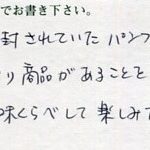 でお書き下さい。
封されていたパンフ
り商品があることを
味くらべして楽しみ